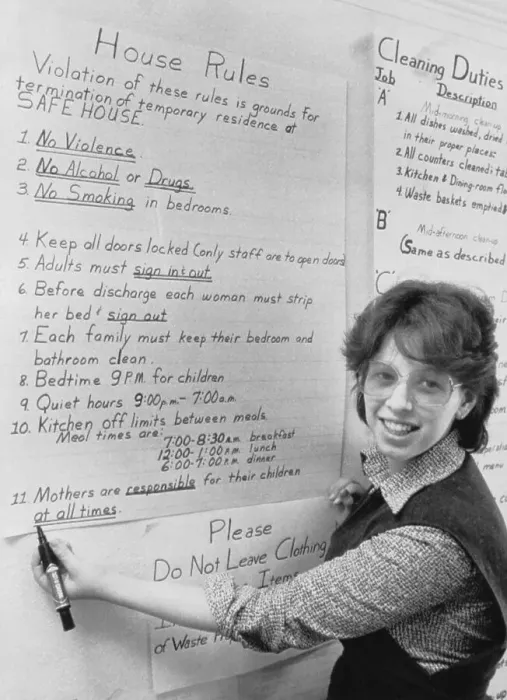 House Rules
Violation of these rules is grounds for
termination of temporary residence at
SAFE HOUSE.
1. No Violence.
2. No Alcohol or Drugs.
3. No Smoking in bedrooms.
4. Keep all doors locked (only staff are to open doors
5. Adults must sign in & out
6. Before discharge each woman must strip
her bed & sign out
7. Each family must keep their bedroom and
bathroom clean.
8. Bedtime 9 P.M. for children
9. Quiet hours 9:00p.m.- 7:00a.m.
10. Kitchen off limits between meals
Meal times are:
7:00-8:30a.m. breakfast
12:00-1:00p.m. lunch
6:00-7:00p.m. dinner
11. Mothers are responsible for their children
at all times.
Please
Do Not Leave Clothing
Items
of Waste
Cleaning Duties
Job Description
'A' Mid-morning clean-up
1. All dishes washed, dried
in their proper places.
2. All counters cleaned;
3. Kitchen & Dining-room
4. Waste baskets emptied
'B' Mid-afternoon clean-up
(Same as described
'C'
menu